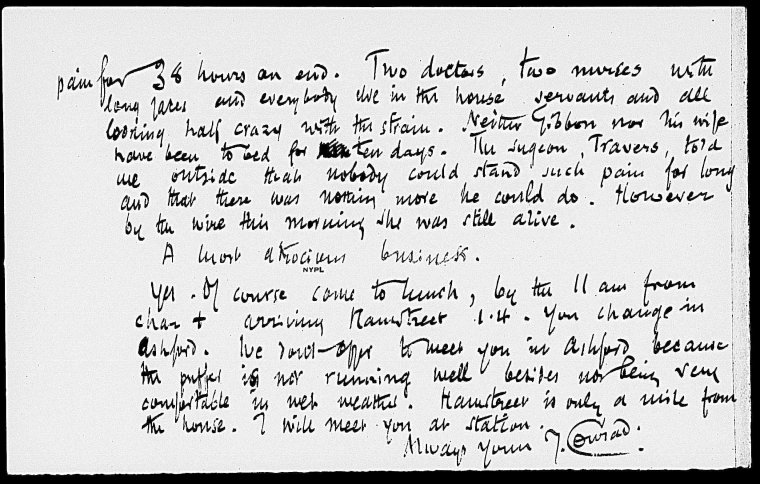 pain for 38 hours on end. Two doctors, two nurses with
long faces and everybody else in the house servants and all
looking half crazy with the strain. Neither Gibbon nor his wife
have been to bed for ten days. The surgeon, Travers, told
me outside that nobody could stand such pain for long
and that there was nothing more he could do. However
by the wire this morning she was still alive.
A most atrocious business.
NYPL
Yes. Of course come to lunch, by the 11 am from
char + arriving Hamstreet 1.4. You change in
Ashford. We don't offer to meet you in Ashford because
the puffer is not running well besides not being very
comfortable in wet weather. Hamstreet is only a mile from
the house. I will meet you at station.
Always yours J. Conrad.